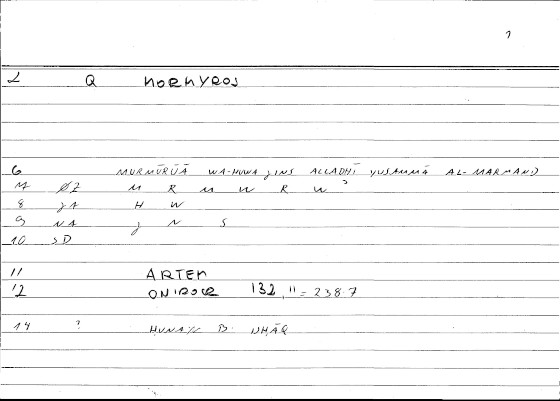 1
2 Q MORMYROS
6 MURMŪRŪĀ WA-HUWA JINS ALLADHĪ YUSAMMĀ AL-MARMAND
M ØZ M R M W R W ?
8 JA H W
9 NA J N S
10 SD
11 ARTEM
12 ONIROCR 132,11 = 238.7
14 ? HUNAYN B. ISHĀQ